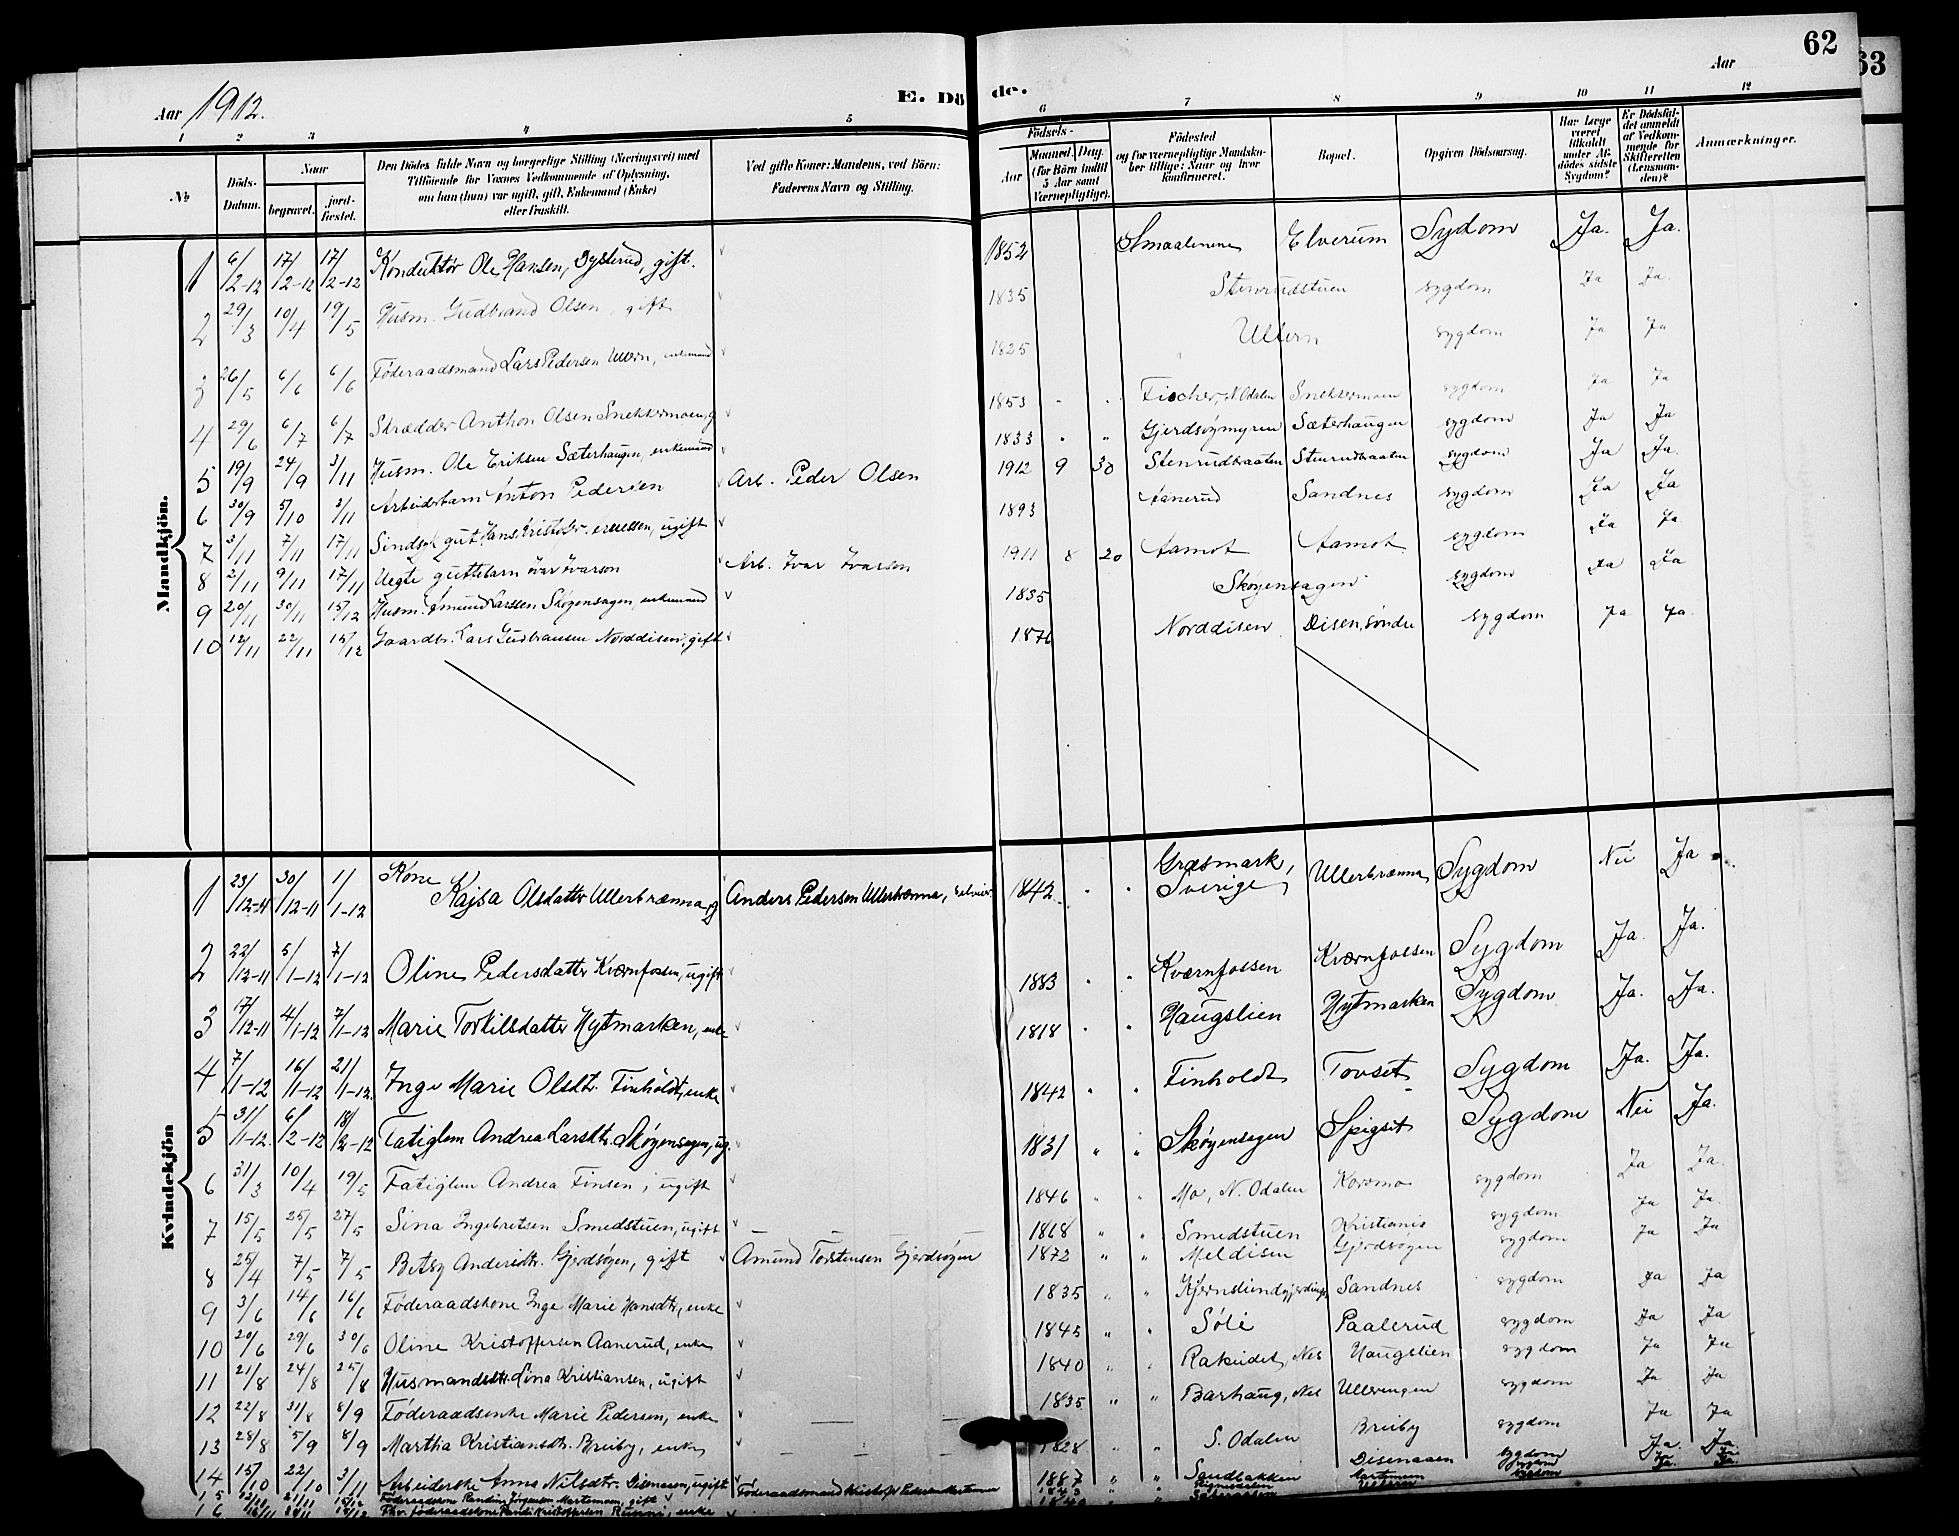 62
63
Aar 1912.
E. Dö de.
Aar
1 2 3 4 5 6 7 8 9 10 11 12
No
Döds-Datum.
Naar
begravet.
jordfæstet.
Den Dödes fulde Navn og borgerlige Stilling (Næringsvei) med
Tilföiende for Voxnes Vedkommende af Oplysning,
om han (hun) var ugift, gift, Enkemand (Enke)
eller fraskilt.
Ved gifte Koner: Mandens, ved Börn:
Faderens Navn og Stilling.
Födsels-
Aar
Maaned. Dag.
(for Börn indtil 5 Aar samt Værnepligtige).
Födested
og for værnepligtige Mandskaber tillige: Naar og hvor konfirmeret.
Bopæl.
Opgiven Dödsaarsag.
Har Læge været tilkaldt under Afdödes sidste Sygdom?
Er Dödsfaldet anmeldt af Vedkommende for Skifteretten (Lensmanden)?
Anmærkninger.
Mandkjön.
1 6/2-12 17/2-12 17/2-12 Konduktør Ole Hansen, Dysterud, gift. 1852 Smaalenene Elverum Sydom Ja. Ja.
2 29/3 10/4 19/5 Husm. Gudbrand Olsen, gift 1835 Stenrudstuen sygdom Ja Ja.
3 26/5 6/6 6/6 Føderaadsmand Lars Pedersen Ullern, enkemand 1825 Ullern sygdom Ja Ja
4 29/6 6/7 6/7 Skrædder Anthon Olsen Snekkermoen, g 1853 Fischer, N. Odalen Snekkermoen sygdom Ja Ja
5 19/9 24/9 3/11 Husm. Ole Eriksen Sæterhaugen, enkemand 1833 Gjerdsøymyren Sæterhaugen sygdom Ja Ja
6 30/9 5/10 3/11 Arbeiderbarn Anton Pedersen Arb. Peder Olsen 1912 9 30 Stenrudbraaten Stenrudbraaten sygdom Ja Ja.
7 3/11 7/11 17/11 Sindssyk gut Hans ugift 1893 Aanerud Sandnes sygdom Ja Ja
8 2/11 9/11 17/11 Uegte guttebarn Ivar Ivarson Arb. Ivar Ivarson 1911 8 20 Aamot Aamot sygdom Ja Ja.
9 20/11 30/11 15/12 Husm. Amund Larssen Skøyensagen, enkemand 1835 Skøyensagen sygdom Ja Ja
10 12/11 22/11 15/12 Gaardbr. Lars Gudbransen Norddisen, gift 1876 Norddisen Disen, søndre sygdom Ja Ja.
Kvindekjön
1 23/12-11 30/12-11 1/1-12 Kone Kajsa Olsdatter Ullerbrænna, g Anders Pedersen Ullerbrænna, 1842 Græsmark, Sverige Ullerbrænna Sygdom Nei Ja
2 22/12-11 5/1-12 7/1-12 Oline Pedersdatter Kværnfossen, ugift 1883 Kværnfossen Kværnfossen Sygdom Ja. Ja.
3 17/12-11 4/1-12 7/1-12 Marie Torkilsdatter Hytmarken, enke 1818 Haugslien Hytmarken Sygdom Ja. Ja.
4 7/1-12 16/1-12 21/1-12 Inge Marie Olsdtr. Finholdt, enke 1842 Finholdt Tovset Sygdom Ja. Ja.
5 31/1-12 6/2-12 18/2-12 Fatiglem Andrea Larsdtr. Skøyensagen, ug. 1831 Skøyensagen Spigset Sygdom Nei Ja.
6 31/3 10/4 19/5 Fatiglem Andrea Finsen, ugift 1846 Mo, N. Odalen Korsmo sygdom Ja Ja.
7 15/5 25/5 27/5 Sina Ingebretsen Smedstuen, ugift 1868 Smedstuen Kristiania sygdom Ja Ja.
8 25/4 7/5 7/5 Betsy Andersdtr. Gjerdsøgen, gift Amund Torstensen Gjerdsøgen 1872 Meldisen Gjerdsøgen sygdom Ja Ja
9 3/6 14/6 16/6 Føderaadskone Inge Marie Hansdtr, enke 1835 Sandnes sygdom Ja Ja
10 20/6 29/6 30/6 Oline Kristoffersen Aanerud, enke 1845 Søli Paalerud sygdom Ja Ja
11 21/8 24/8 25/8 Husmandsdtr. Lina Kristiansen, ugift 1840 Rakeidet, Nes Haugslien sygdom Ja Ja
12 22/8 31/8 8/9 Føderaadsenke Marie Pedersen, enke 1835 Barhaug, Nes Ullerengen sygdom Ja Ja
13 28/8 5/9 8/9 Martha Kristiansdtr. Breiby, enke 1828 S. Odalen Breiby sygdom Ja Ja
14 15/10 22/10 3/11 Arbeiderske Anna Nilsdtr. Disenaaen, ugift 1887 Sandbakken Disenaaen sygdom Ja. Ja
15 Føderaadskone Pandine Jørgensen Martemoen, gift Føderaadsmand Kristoff Pedersen Martemoen 1843 Martemoen sygdom Ja Ja
16 Føderaadskone Randi Kristoffersen enke sygdom Ja Ja